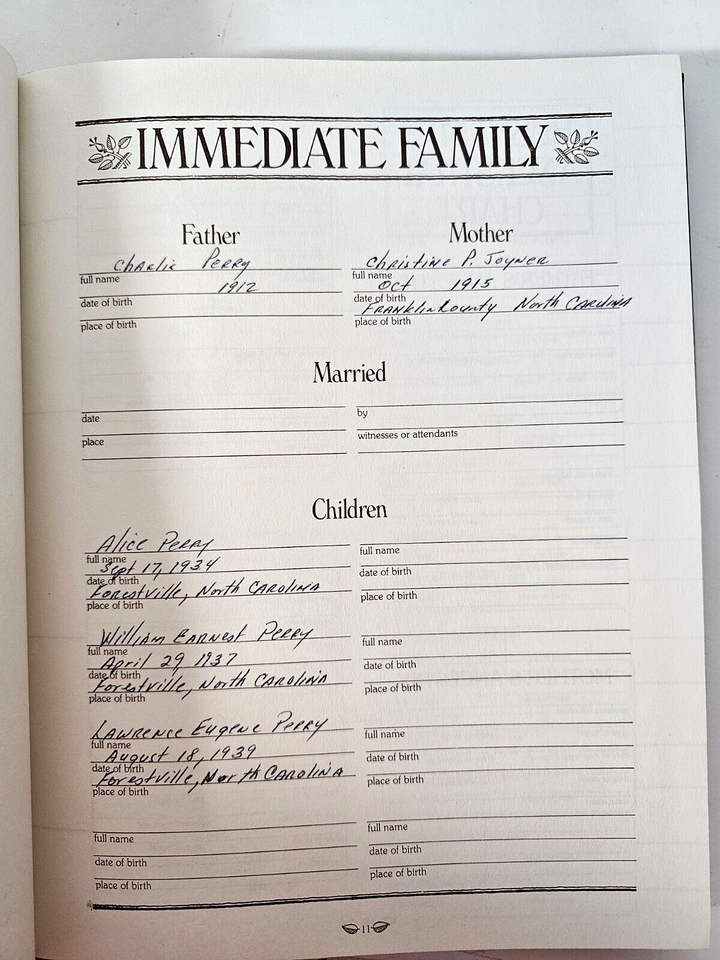 IMMEDIATE FAMILY
Father
Mother
Charlie Perry
Christine P. Joyner
full name
full name
1912
Oct 1915
date of birth
date of birth
Franklin County North Carolina
place of birth
place of birth
Married
date
by
place
witnesses or attendants
Children
Alice Perry
full name
full name
Sept 17, 1934
date of birth
date of birth
Forestville, North Carolina
place of birth
place of birth
William Earnest Perry
full name
full name
April 29, 1937
date of birth
date of birth
Forestville, North Carolina
place of birth
place of birth
Lawrence Eugene Perry
full name
full name
August 18, 1939
date of birth
date of birth
Forestville, North Carolina
place of birth
place of birth
full name
full name
date of birth
date of birth
place of birth
place of birth
11